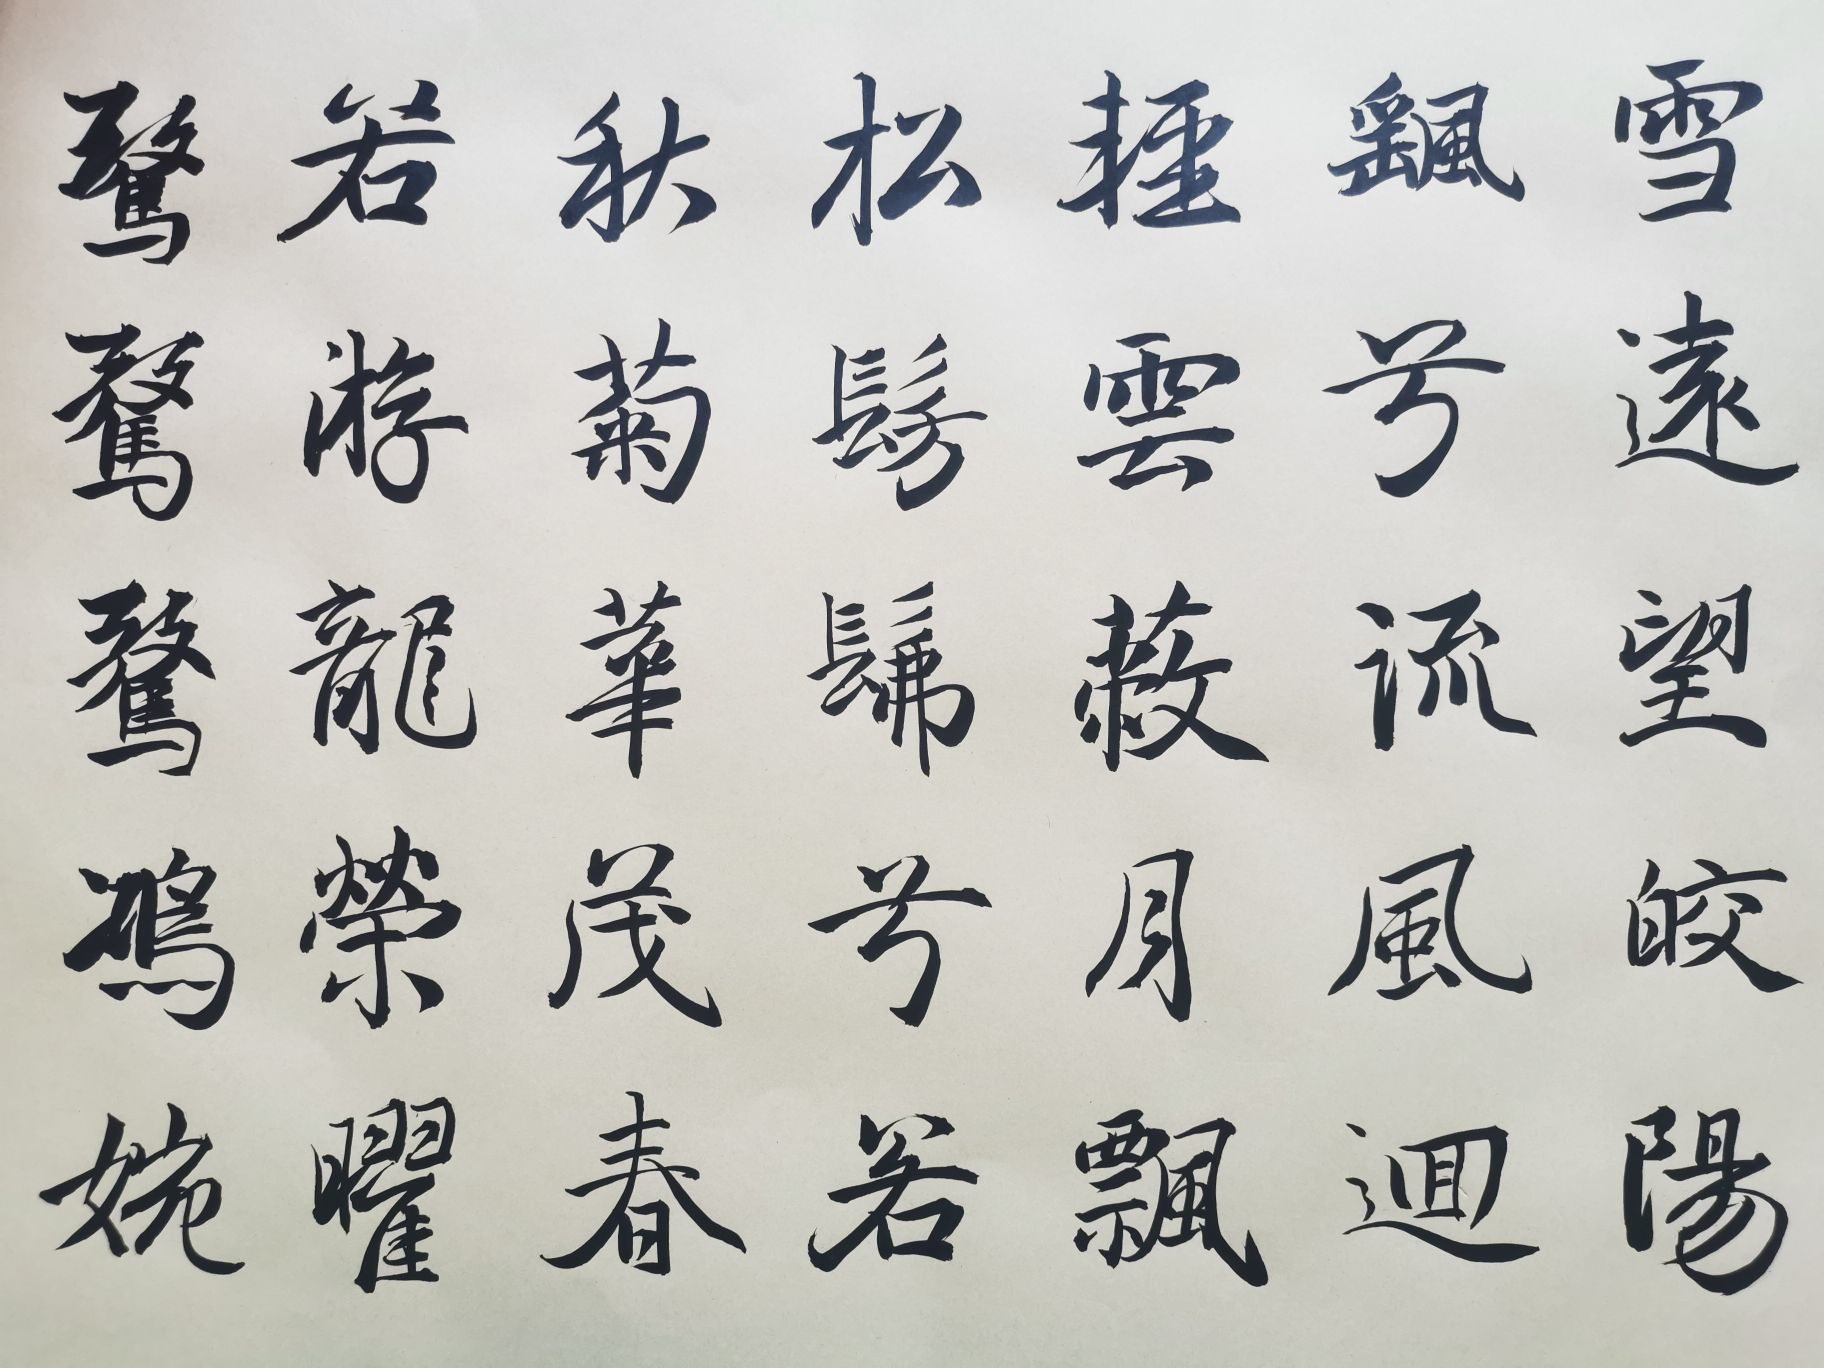 驚驚驚鴻婉
若游龍榮曜
秋菊華茂春
松髣髴兮若
輕雲蔽月飄
颻兮流風迴
雪遠望皎陽